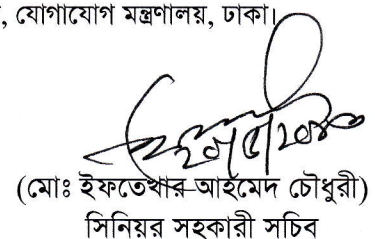 , যোগাযোগ মন্ত্রণালয়, ঢাকা।
(মোঃ ইফতেখার আহমেদ চৌধুরী)
সিনিয়র সহকারী সচিব